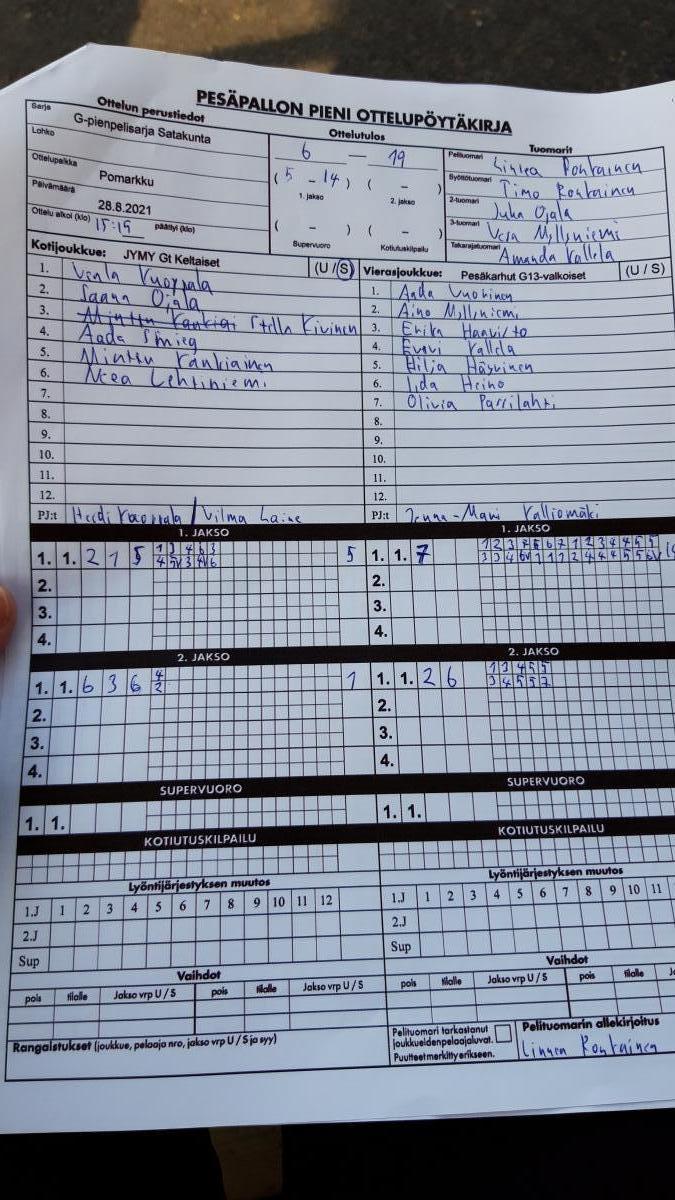 PESÄPALLON PIENI OTTELUPÖYTÄKIRJA
Ottelun perustiedot
Sarja G-pienpelisarja Satakunta
Lohko
Ottelupaikka Pomarkku
Päivämäärä 28.8.2021
Ottelu alkoi (klo) 15:19 päättyi (klo)
Ottelutulos
6 — 19
( 5 - 14 ) ( - )
1. jakso 2. jakso
( - ) ( - )
Supervuoro Kotiutuskilpailu
Tuomarit
Pelituomari Linnea Rontainen
Syöttötuomari Timo Rontainen
2-tuomari Juha Ojala
3-tuomari Vesa Myllyniemi
Takarajatuomari Amanda Kallela
Kotijoukkue: JYMY Gt Keltaiset (U / S)
1. Venla Vuorpala
2. Saana Ojala
3. Stella Kivinen
4. Aada
5. Minttu Kankiainen
6. Neea Lehtiniemi
7.
8.
9.
10.
11.
12.
PJ:t Heidi / Vilma Laine
Vierasjoukkue: Pesäkarhut G13-valkoiset (U / S)
1. Aada Vuorinen
2. Aino Myllyniemi
3. Erika Haavisto
4. Eevi Kallela
5. Hilja
6. Iida Heino
7. Olivia Passilahti
8.
9.
10.
11.
12.
PJ:t Jenna-Mari Kalliomäki
1. JAKSO
1. 1. 2 1 5 5
2.
3.
4.
1. JAKSO
1. 1. 7
2.
3.
4.
2. JAKSO
1. 1. 6 3 6 4 1
2
2.
3.
4.
2. JAKSO
1. 1. 2 6 1 3 4 5 5
3 4 5 5 7
2.
3.
4.
SUPERVUORO
1. 1.
SUPERVUORO
1. 1.
KOTIUTUSKILPAILU
KOTIUTUSKILPAILU
Lyöntijärjestyksen muutos
1.J 1 2 3 4 5 6 7 8 9 10 11 12
2.J
Sup
Lyöntijärjestyksen muutos
1.J 1 2 3 4 5 6 7 8 9 10 11
2.J
Sup
Vaihdot
pois tilalle Jakso vrp U / S pois tilalle Jakso vrp U / S
Vaihdot
pois tilalle Jakso vrp U / S pois tilalle
Rangaistukset (joukkue, pelaaja nro, jakso vrp U / S ja syy)
Pelituomari tarkastanut
joukkueiden pelaajaluvat.
Puutteet merkitty erikseen.
Pelituomarin allekirjoitus
Linnea Rontainen